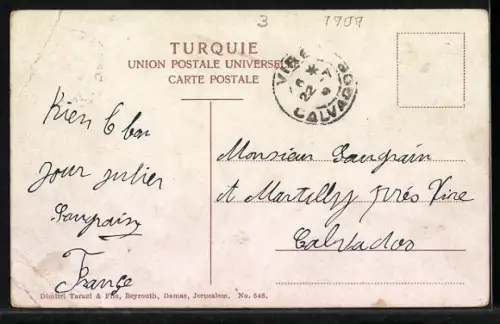 3 1909
TURQUIE
UNION POSTALE UNIVERSELLE
CARTE POSTALE
VIRE
22 - 7
CALVADOS
bon
jour julier
Saugrain
France
Monsieur Saugrain
A Martilly près Vire
Calvados
Dimitri Tarazi & Fils, Beyrouth, Damas, Jerusalem. No. 546.